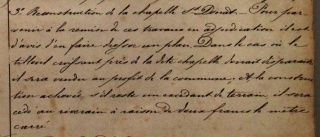 3° Reconstruction de la chapelle St Donat. Pour par
venir à la remise de ces travaux en adjudication il est
d'avis d'en faire dresser un plan. Dans le cas où le
tilleul croissant près de la dite chapelle devrait disparaître
il sera vendu au profit de la commune. Et la construc
tion achevée, s'il reste un excédant de terrain, il sera
cédé au riverain à raison de deux francs le mètre
carré